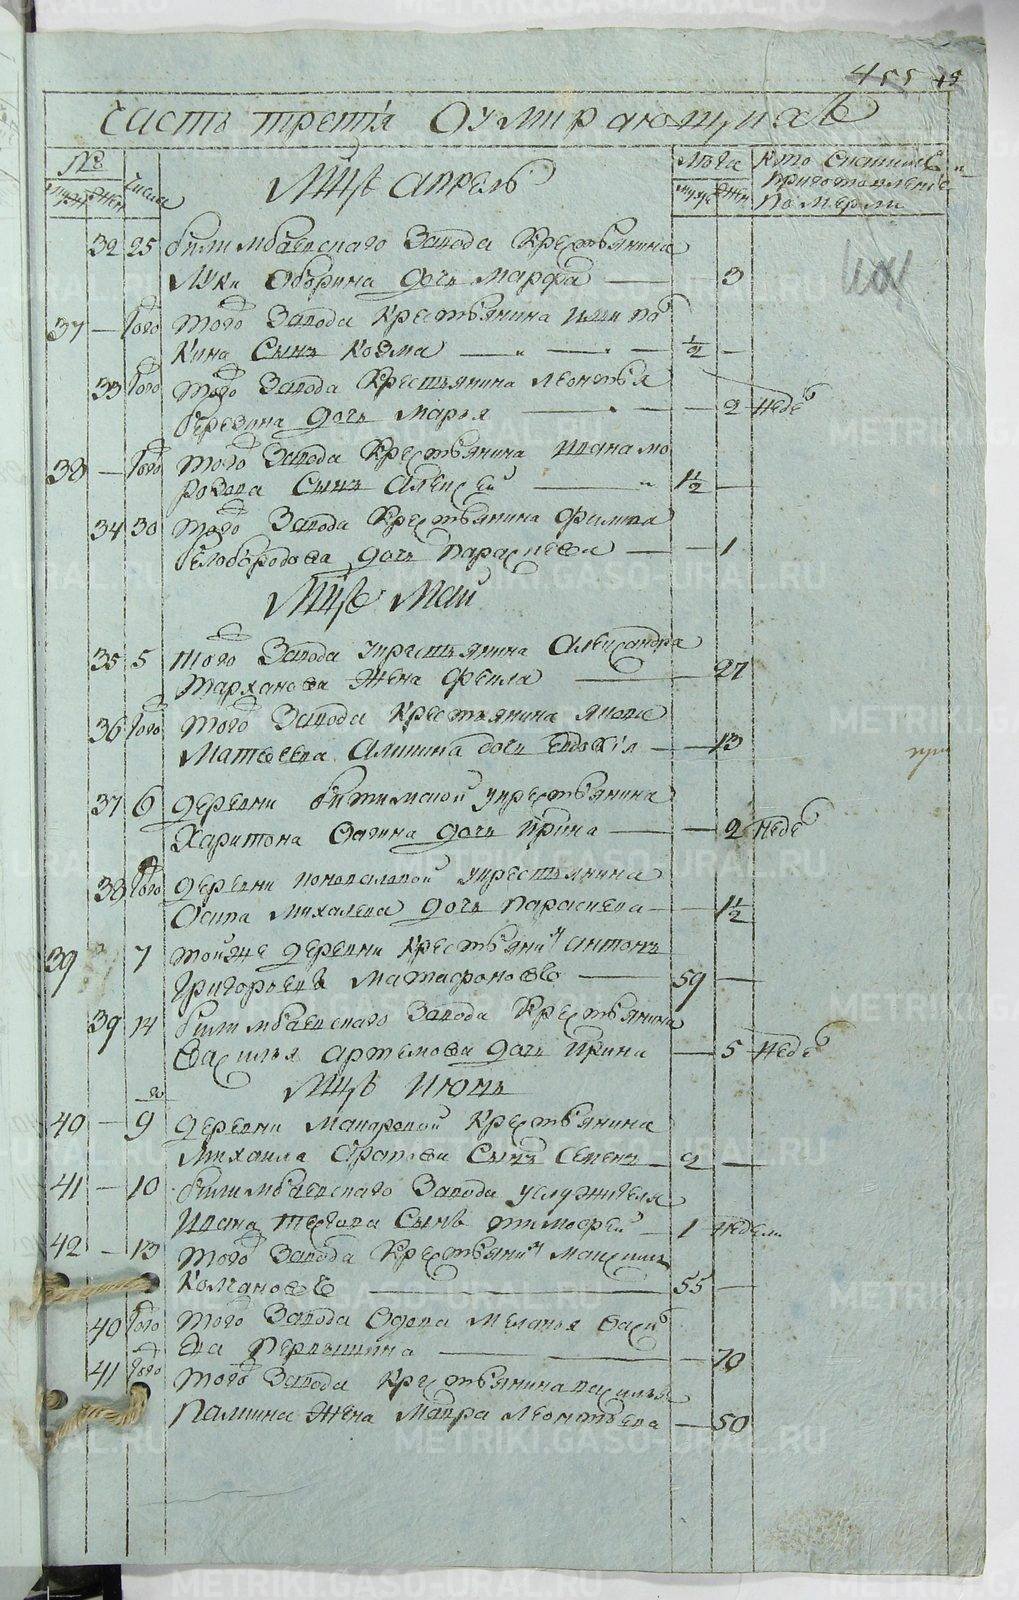 455 15
Часть третія О умирающихъ
№
Мцъ апрель
Лѣта
Кто
муж жен числа
муж жен
померли
32 25 билимбаевскаго завода крестьянина
Луки Оборина дочь Марфа 3
37 того того завода крестьянина
кина сынъ Козма 1/2
33 того того завода крестьянина леонтья
березина дочь Марья 2 неде
38 того того завода крестьянина ивана мо
розова сынъ алексей 1 1/2
34 30 того завода крестьянина филипа
белобородова дочь параскева 1
Мцъ май
35 5 того завода крестьянина александра
тарханова жена фекла 27
36 того того завода крестьянина якова
Матвеева дочь евдокія 13
37 6 деревни битимской крестьянина
Харитона дочь ирина 2 неде
38 того деревни коноваловой крестьянина
Осипа михалева дочь параскева 1 1/2
39 7 той же деревни крестьянинъ антонъ
Григорьевъ матафоновъ 59
39 14 билимбаевскаго завода крестьянина
василья артемова дочь ирина 5 неде
Мцъ июнь
40 9 деревни макаровой крестьянина
михаила арапова сынъ семенъ 2
41 10 билимбаевскаго завода услужителя
ивана сынъ тимофей 1 недели
42 13 того завода крестьянинъ максимъ
55
40 того того завода вдова меланья васи
ева первышина 70
41 того того завода крестьянина василья
палкина жена мавра леонтьева 50
METRIKI.GASO-URAL.RU